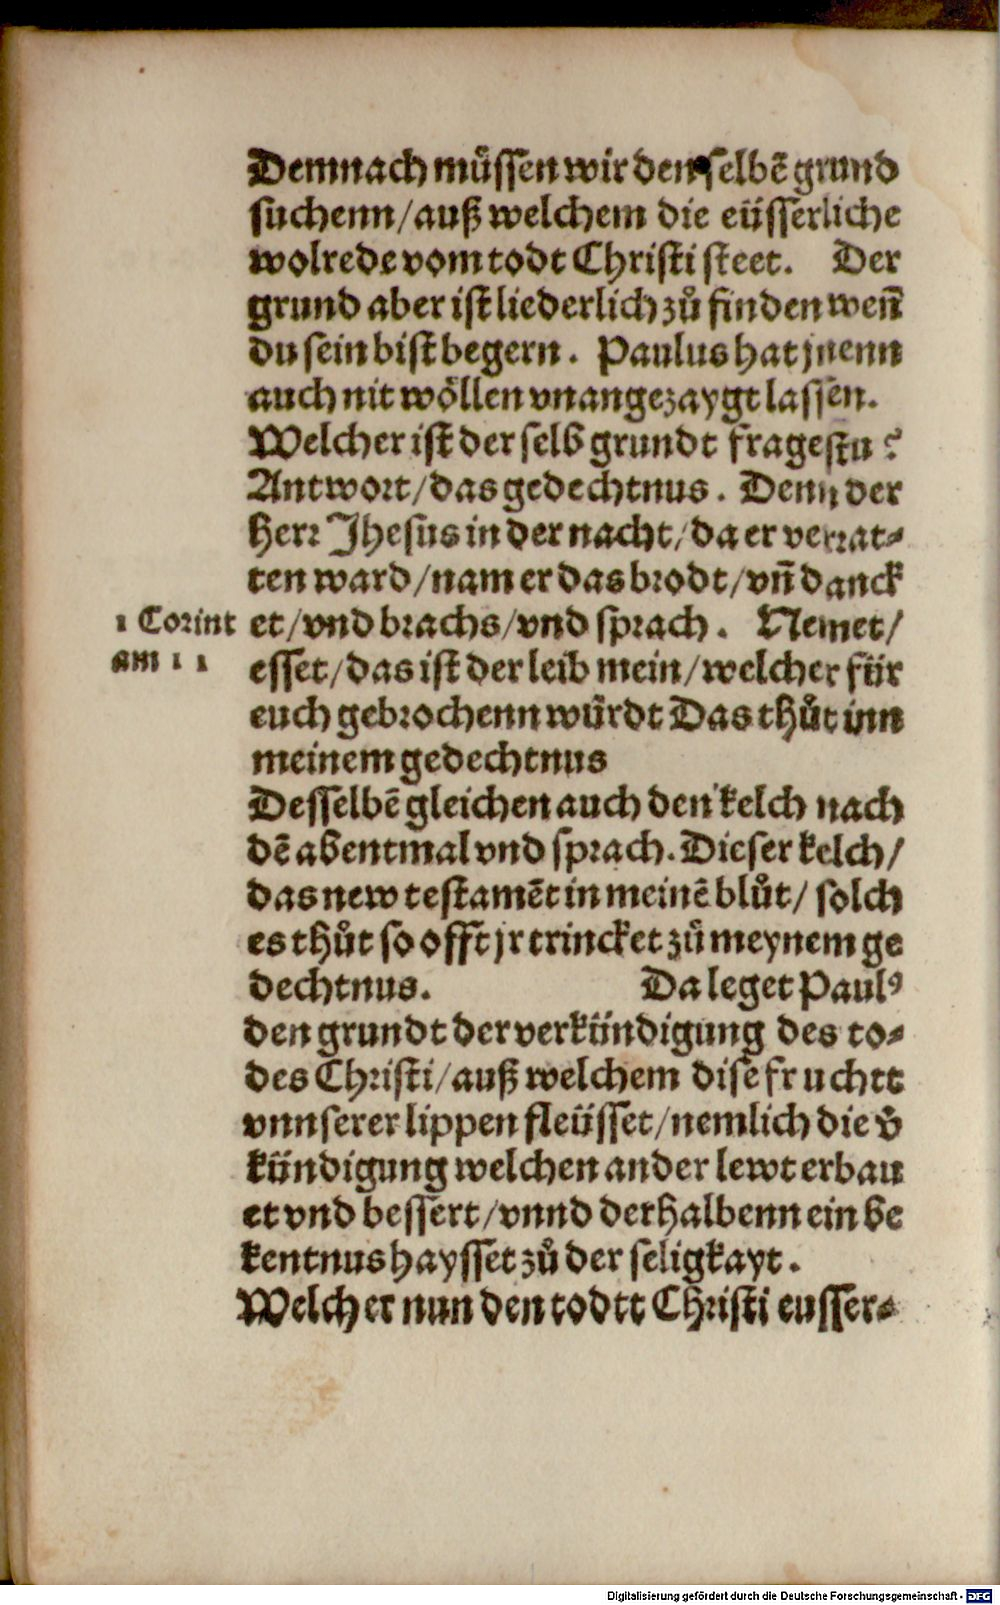 Demnach müssen wir den selbē grund
suchenn/auß welchem die eüsserliche
wolrede vom todt Christi steet. Der
grund aber ist liederlich zů finden weñ
du sein bist begern. Paulus hat jnenn
auch nit wöllen vnangezaygt lassen.
Welcher ist der selb grundt fragestu?
Antwort/das gedechtnus. Denn der
Herr Jhesus in der nacht/da er verrat⸗
ten ward/nam er das brodt/vñ danck
1 Corint
am 11
et/vnd brachs/vnd sprach. Nemet/
esset/das ist der leib mein/welcher für
euch gebrochenn würdt Das thůt inn
meinem gedechtnus
Desselbē gleichen auch den kelch nach
dē abentmal vnd sprach. Dieser kelch/
das new testamēt in meinē blůt/ solch
es thůt so offt jr trincket zů meynem ge
dechtnus. Da leget Paulꝰ
den grundt der verkündigung des to⸗
des Christi/auß welchem dise fruchtt
vnnserer lippen fleüsset/nemlich die v̄
kündigung welchen ander lewt erbau
et vnd bessert/vnnd derhalbenn ein be
kentnus haysset zů der seligkayt.
Welcher nun den todtt Christi eusser⸗
Digitalisierung gefördert durch die Deutsche Forschungsgemeinschaft - DFG